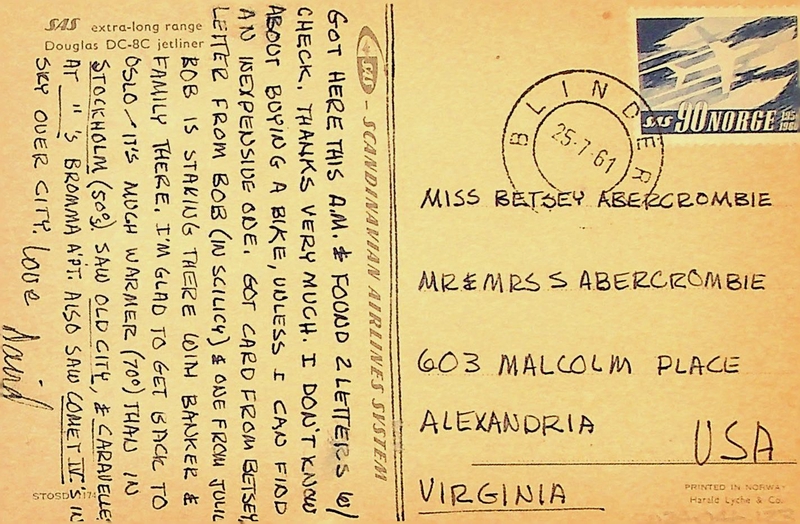 SAS extra-long range
Douglas DC-8C jetliner
SAS - SCANDINAVIAN AIRLINES SYSTEM
GOT HERE THIS A.M. & FOUND 2 LETTERS W/
CHECK. THANKS VERY MUCH. I DON'T KNOW
ABOUT BUYING A BIKE, UNLESS I CAN FIND
AN INEXPENSIVE ONE. GOT CARD FROM BETSEY,
LETTER FROM BOB (IN SCILICY) & ONE FROM JULIE
BOB IS STAKING THERE WITH BANKER &
FAMILY THERE. I'M GLAD TO GET BACK TO
OSLO - IT'S MUCH WARMER (70°) THAN IN
STOCKHOLM (50°). SAW OLD CITY, & CARAVELLE'S
AT " 'S BROMMA A'PT. ALSO SAW COMET IV'S IN
SKY OVER CITY. Love
David
STOSD
BLINDERN
25-7-61
SAS 90 NORGE 1951 1961
MISS BETSEY ABERCROMBIE
MR & MRS S ABERCROMBIE
603 MALCOLM PLACE
ALEXANDRIA
USA
VIRGINIA
PRINTED IN NORWAY
Harald Lyche & Co.